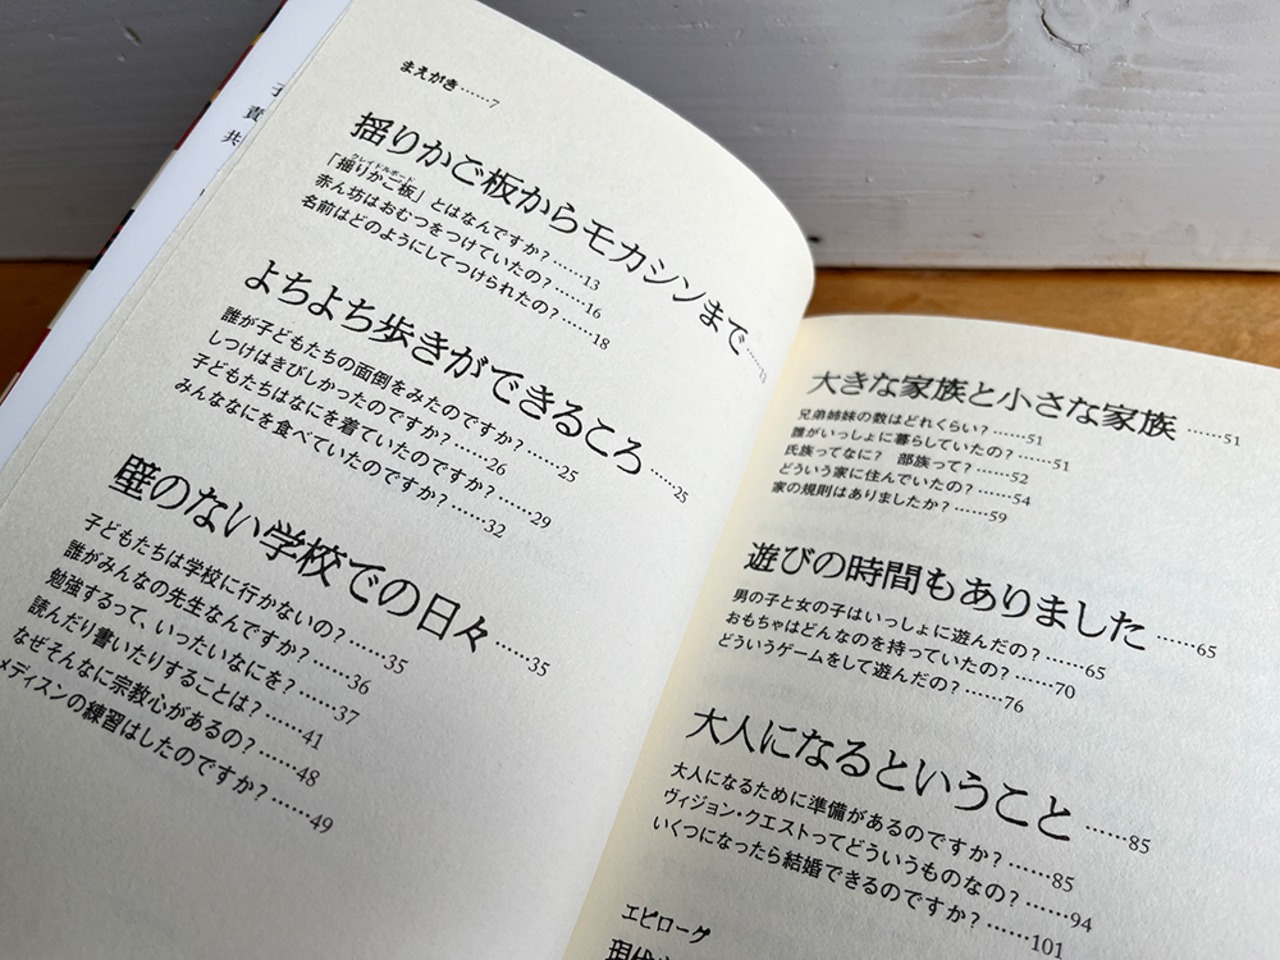 まえがき……7
揺りかご板からモカシンまで……11
「揺りかご板」とはなんですか?……13
クレイドルボード
赤ん坊はおむつをつけていたの?……16
名前はどのようにしてつけられたの?……18
よちよち歩きができるころ……25
誰が子どもたちの面倒をみたのですか?……25
しつけはきびしかったのですか?……26
子どもたちはなにを着ていたのですか?……29
みんななにを食べていたのですか?……32
壁のない学校での日々……35
子どもたちは学校に行かないの?……35
誰がみんなの先生なんですか?……36
勉強するって、いったいなにを?……37
読んだり書いたりすることは?……41
なぜそんなに宗教心があるの?……48
メディスンの練習はしたのですか?……49
大きな家族と小さな家族……51
兄弟姉妹の数はどれくらい?……51
誰がいっしょに暮らしていたの?……51
氏族ってなに? 部族って?……52
どういう家に住んでいたの?……54
家の規則はありましたか?……59
遊びの時間もありました……65
男の子と女の子はいっしょに遊んだの?……65
おもちゃはどんなのを持っていたの?……70
どういうゲームをして遊んだの?……76
大人になるということ……85
大人になるために準備があるのですか?……85
ヴィジョン・クエストってどういうものなの?……94
いくつになったら結婚できるのですか?……101
エピローグ
現代
子
責
共